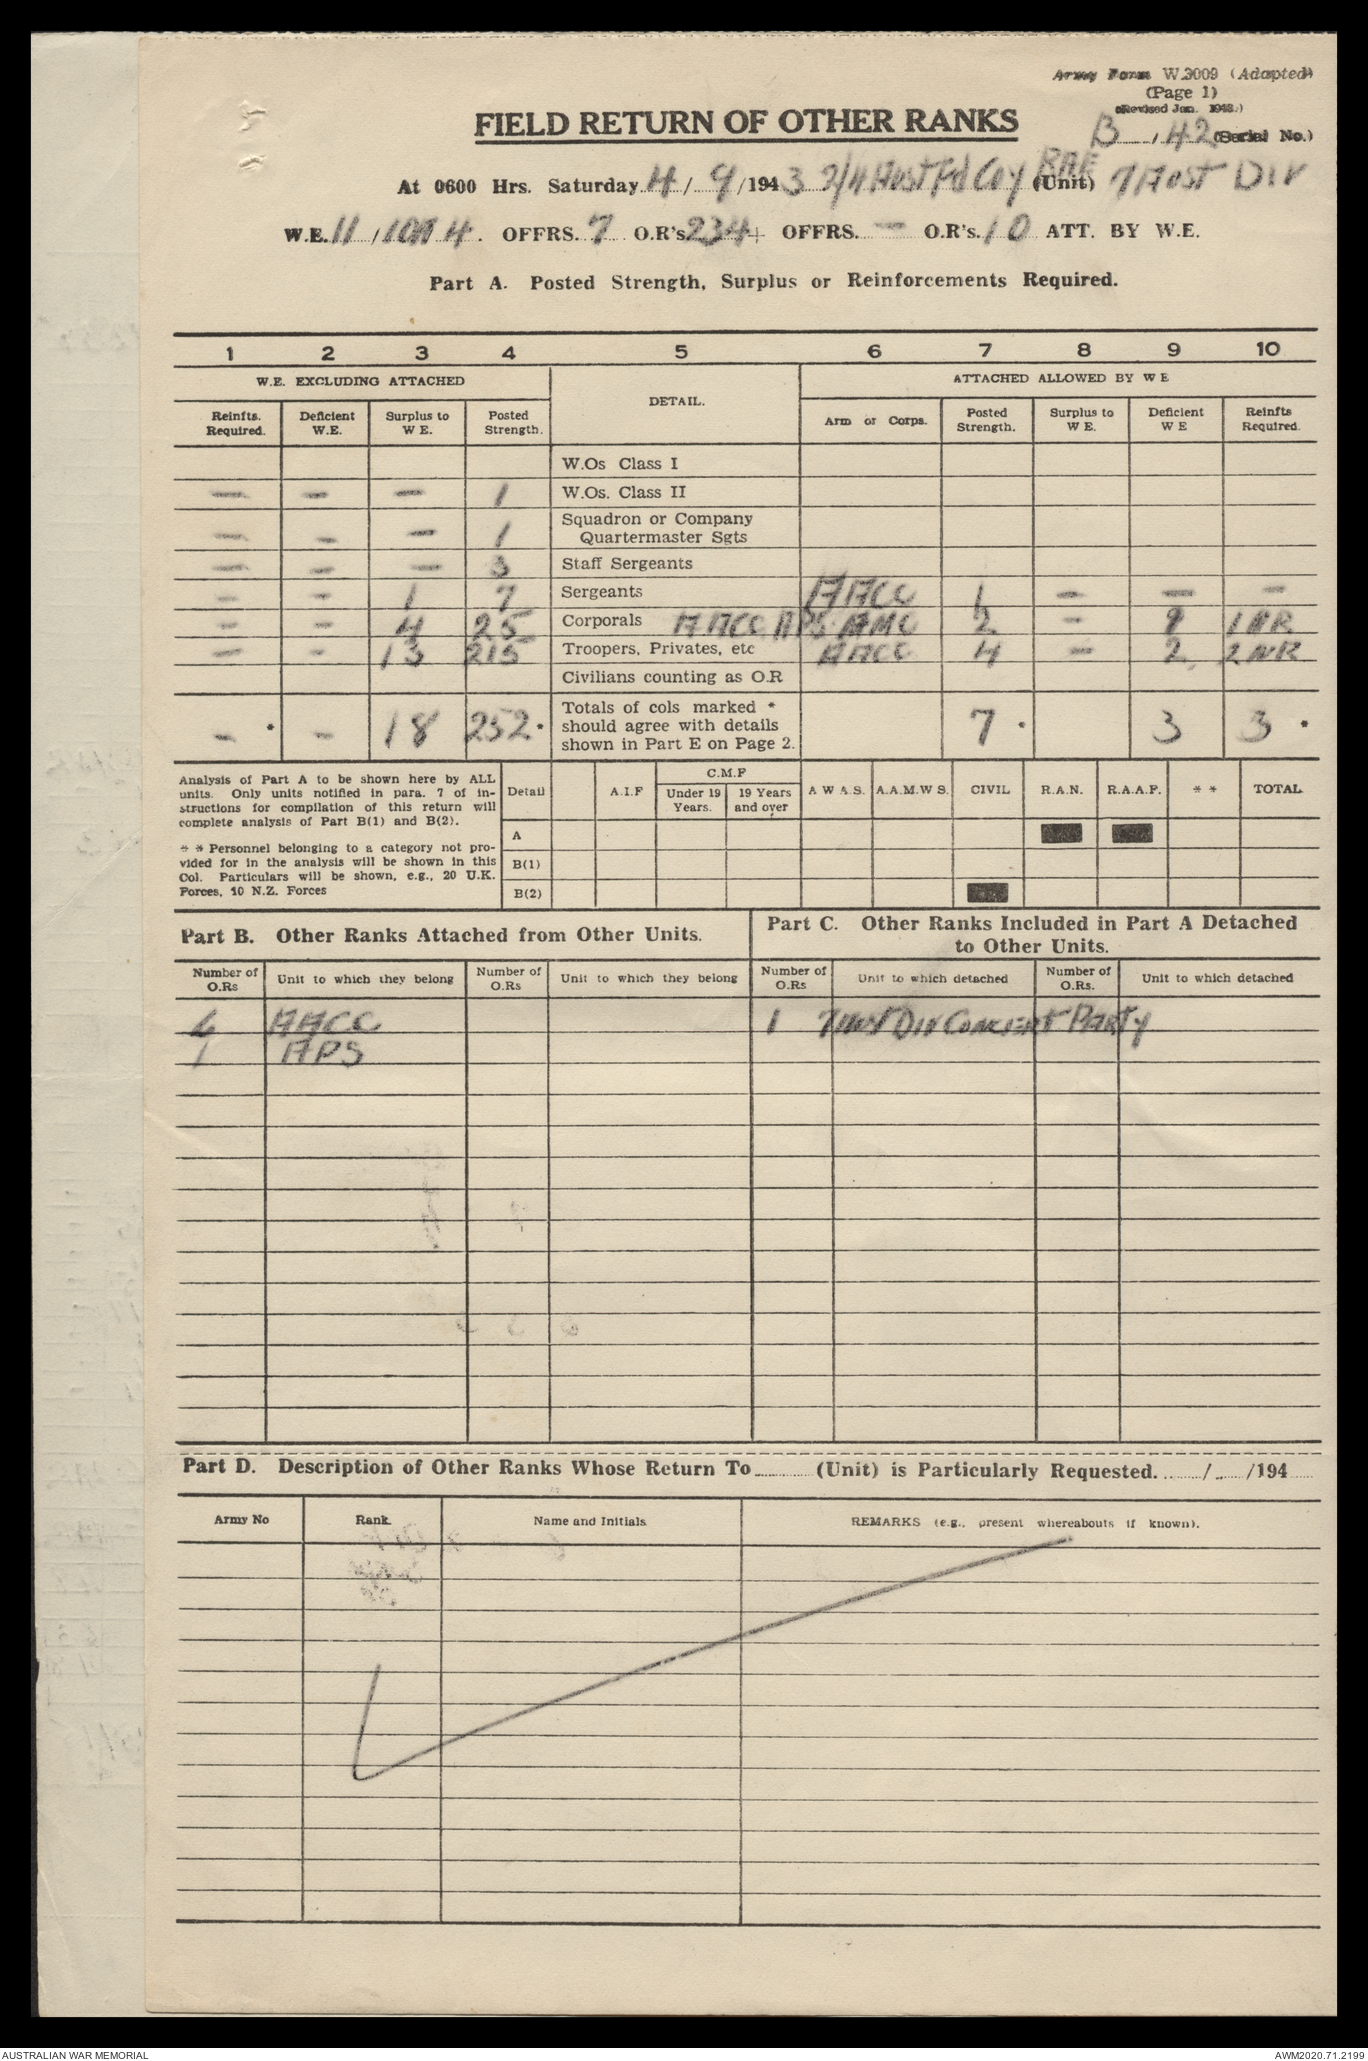 Army Form W.3009 (Adapted)
(Page 1)
(Revised Jan. 1943.)
FIELD RETURN OF OTHER RANKS
B / 42 (Serial No.)
At 0600 Hrs. Saturday 4 / 9 /1943 2/4 Aust Fd Coy RAE (Unit) 7 Aust Div
W.E. 11 / / 4. OFFRS. 7 O.R's 234+ OFFRS. — O.R's. 10 ATT. BY W.E.
Part A. Posted Strength, Surplus or Reinforcements Required.
1 2 3 4 5 6 7 8 9 10
W.E. EXCLUDING ATTACHED DETAIL. ATTACHED ALLOWED BY W E
Reinfts. Required. Deficient W.E. Surplus to W E. Posted Strength. Arm or Corps. Posted Strength. Surplus to W E. Deficient W E Reinfts Required.
W.Os Class I
— — — 1 W.Os. Class II
— — — 1 Squadron or Company Quartermaster Sgts
— — — 3 Staff Sergeants
— — 1 7 Sergeants AACC 1 — — —
— — 4 25 Corporals AACC APS AMC 2 — 1 NR
— — 13 215 Troopers, Privates, etc AACC 4 — 2 2 NR
Civilians counting as O.R
— * — 18 252 * Totals of cols marked * should agree with details shown in Part E on Page 2. 7 * 3 3 *
Analysis of Part A to be shown here by ALL
units. Only units notified in para. 7 of in-
structions for compilation of this return will
complete analysis of Part B(1) and B(2).
* * Personnel belonging to a category not pro-
vided for in the analysis will be shown in this
Col. Particulars will be shown, e.g., 20 U.K.
Forces, 10 N.Z. Forces
Detail A.I.F C.M.F Under 19 Years. 19 Years and over A W A.S. A.A.M.W S. CIVIL R.A.N. R.A.A.F. * * TOTAL
A
B(1)
B(2)
Part B. Other Ranks Attached from Other Units.
Part C. Other Ranks Included in Part A Detached
to Other Units.
Number of O.Rs Unit to which they belong Number of O.Rs Unit to which they belong Number of O.Rs Unit to which detached Number of O.Rs. Unit to which detached
6 AACC 1 7 Aust Div Concert Party
1 APS
Part D. Description of Other Ranks Whose Return To (Unit) is Particularly Requested. / /194
Army No Rank. Name and Initials REMARKS (e.g., present whereabouts if known).
AUSTRALIAN WAR MEMORIAL AWM2020.71.2199